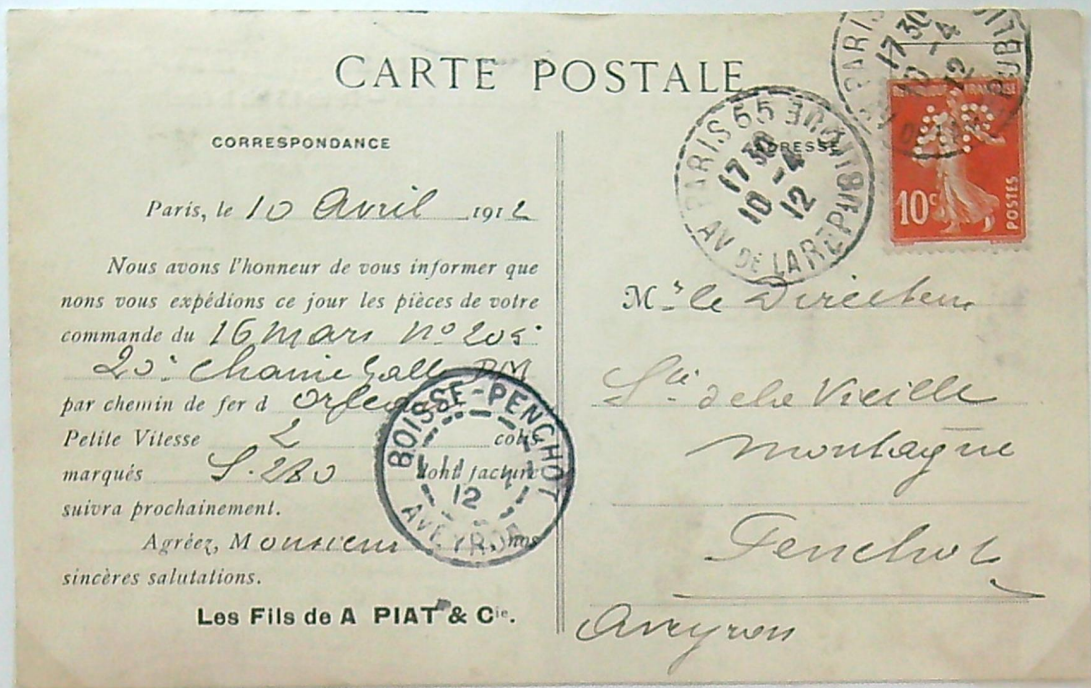 CARTE POSTALE
CORRESPONDANCE
Paris, le 10 Avril 1912
Nous avons l'honneur de vous informer que
nons vous expédions ce jour les pièces de votre
commande du 16 mars no 205
20
par chemin de fer d Orléans
Petite Vitesse 2 colis
marqués S. 280 dont facture
suivra prochainement.
Agréez, Monsieur nos
sincères salutations.
Les Fils de A PIAT & Cie.
BOISSE-PENCHOT
11 4
12
AVEYRON
ADRESSE
PARIS 55
17 30
10 -4
12
AV DE LA REPUBLIQUE
PARIS
17 30
10 -4
12
REPUBLIQUE FRANÇAISE
10c
POSTES
Mr le Directeur
Sté de la Vieille
Montagne
Penchot
Aveyron